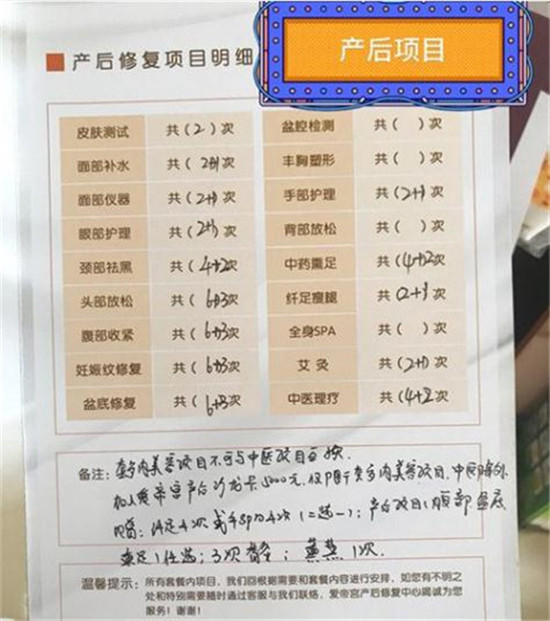 产后项目
产后修复项目明细
皮肤测试 共(2)次 盆腔检测 共( )次
面部补水 共(2+1)次 丰胸塑形 共( )次
面部仪器 共(2+1)次 手部护理 共(2+1)次
眼部护理 共(2+1)次 背部放松 共( )次
颈部祛黑 共(4+2次 中药熏足 共(4+2次
头部放松 共(6+3次 纤足瘦腿 共(2+1次
腹部收紧 共(6+3次 全身SPA 共( )次
妊娠纹修复 共(6+3次 艾灸 共(2+1)次
盆底修复 共(6+3次 中医理疗 共(4+2次
备注:套餐内美容项目不可与中医项目互换
产后沙龙卡5000元,仅限于套餐内美容项目,中医除外
4次 4次(二选一);产后项目
1任选;3次 1次.
温馨提示:所有套餐内项目,我们回根据需要和套餐内容进行安排,如您有不明之
处和特别需要随时通过客服与我们联络,爱帝宫产后修复中心竭诚为您
服务!谢谢!